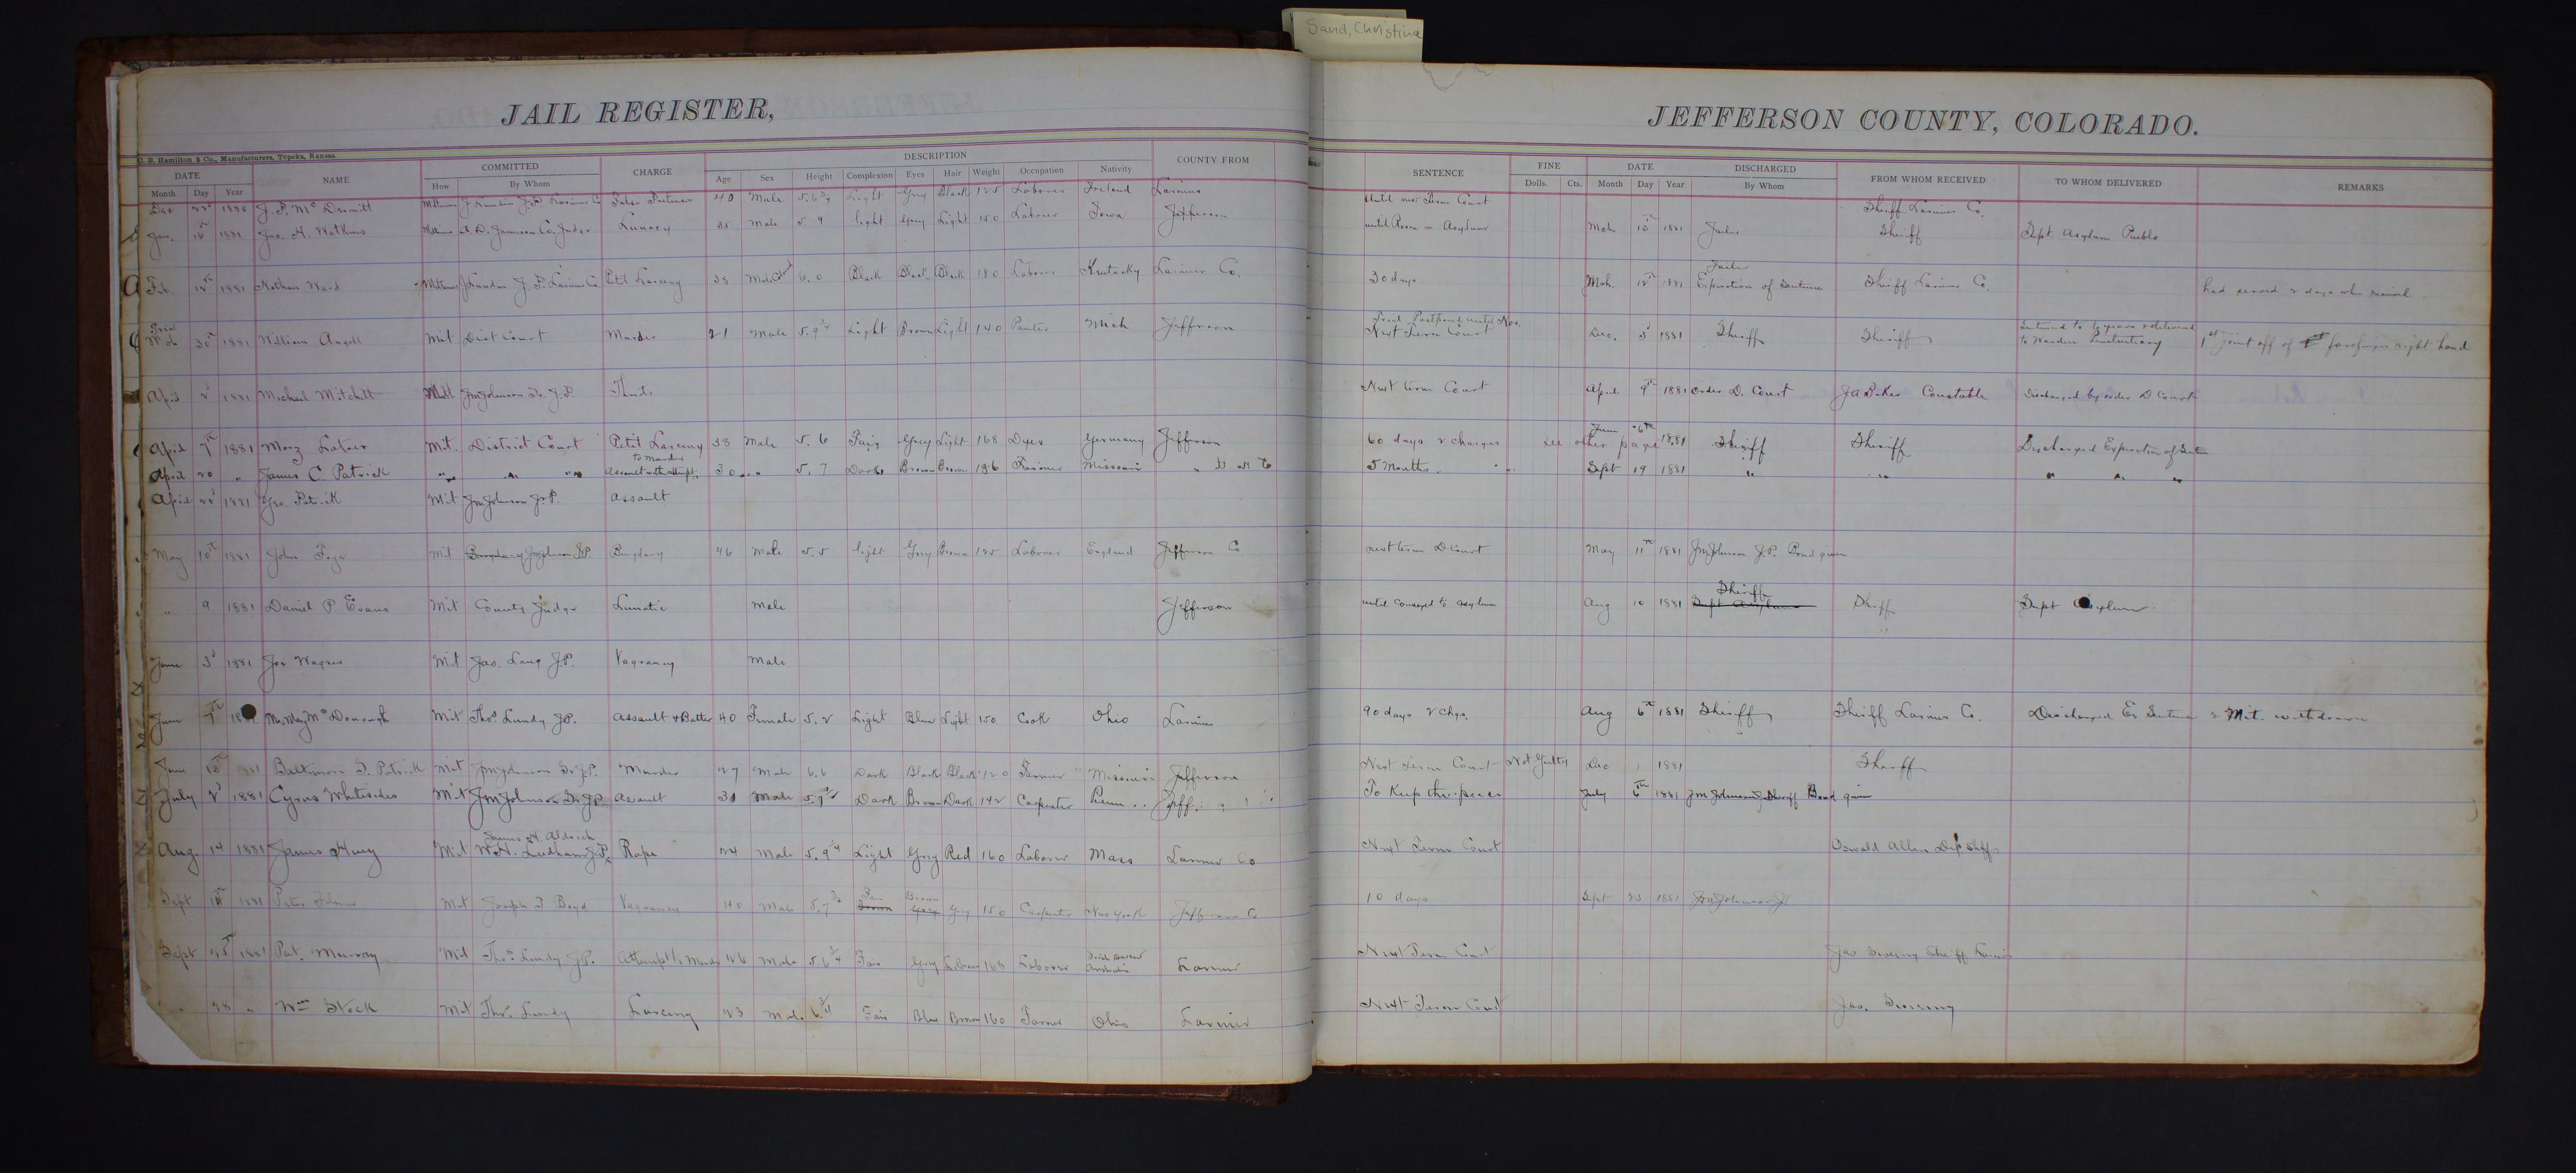 Sand, Christina
JAIL REGISTER,
JEFFERSON COUNTY, COLORADO.
C. B. Hamilton & Co., Manufacturers, Topeka, Kansas.
DATE NAME COMMITTED CHARGE DESCRIPTION COUNTY FROM SENTENCE FINE DATE DISCHARGED FROM WHOM RECEIVED TO WHOM DELIVERED REMARKS
Month Day Year How By Whom Age Sex Height Complexion Eyes Hair Weight Occupation Nativity Dolls. Cts. Month Day Year By Whom
Dec 1880 J. P. Mc 40 Male Light Grey Black Laborer Ireland Larimer Until next Term Court Sheriff Larimer Co.
Jan. 1881 H. Watkins Co. Judge Lunacy 35 Male 5. 9 light Grey Light 150 Laborer Iowa Jefferson until Room in Asylum Mch 1881 Sheriff Supt Asylum Pueblo
Feb. 12th 1881 Nathan Ward J. P. Larimer Co. Petit Larceny 38 Male 6. 0 Black Black Black 180 Laborer Kentucky Larimer Co. 30 days Mch. 12th 1881 Expiration of Sentence Sheriff Larimer Co. had served 2 days when received
Mch 30th 1881 William Angell Mit Dist Court Murder 21 Male Light Brown Light 140 Painter Mich Jefferson Trial Postponed until Nov. Next Term Court Dec. 3d 1881 Sheriff Sheriff Sentenced to years & delivered to Warden Penitentiary 1st joint off of forefinger right hand
April 2d 1881 Michael Mitchell Mitt. JM Johnson Sr. J.P. Next term Court April 9th 1881 Order D. Court Constable Discharged by order D Court
April 7th 1881 Mit. District Court Petit Larceny 38 Male 5. 6 Fair Grey Light 168 Dyer Germany Jefferson 60 days & charges see other page June 6th 1881 Sheriff Sheriff Discharged Expiration of Sentence
April 20 " James C. Patrick " " " Assault with attempt to murder 30 " 5. 7 Dark Brown Brown 186 Farmer Missouri 5 Months Sept 19 1881 " " " " "
April 22d 1881 Geo. Patrick Mit JM Johnson J.P. Assault
May 10th 1881 John Mit JM Johnson J.P. Burglary 46 Male 5. 5 light Grey Brown Laborer England Jefferson Co next term D Court May 11th 1881 JM Johnson J.P. Bond given
" 9 1881 Daniel P. Evans Mit County Judge Lunatic Male Jefferson until conveyed to Asylum Aug 10 1881 Sheriff Supt Asylum Sheriff Supt Asylum
June 3d 1881 Joe Wagner Mit Jas. Lang J.P. Vagrancy Male
June 7th Mrs. May McDonough Mit Thos Lundy J.P. Assault & Batter 40 Female 5. 2 Light Blue Light 150 Cook Ohio Larimer 90 days & Chgs. Aug 6th 1881 Sheriff Sheriff Larimer Co. Discharged Ex Sentence & Mit. withdrawn
June 1881 Baltimore Patrick Mit JM Johnson Sr J.P. Murder 27 Male 6. 6 Dark Black Black Farmer Missouri Jefferson Next Term Court Not Guilty Dec 1 1881 Sheriff
July 2d 1881 Cyrus Whitesides Mit JM Johnson Sr J.P. Assault 31 Male Dark Brown Dark 142 Carpenter Penn Jeff. To Keep the peace July 6th 1881 JM Johnson Sheriff Bond given
Aug. 14 1881 James Mit James H. Aldrich J.P. Rape 24 Male Light Grey Red 160 Laborer Mass Larimer Co Next Term Court Oswald Allen Dep Shff
Sept 1881 Peter Mit Joseph Boyd Vagrancy 40 Male Brown Fair Grey Brown Grey 150 Carpenter New York Jefferson Co 10 days Sept 23 1881 JM Johnson Jr
Sept 1881 Pat. Murray Mit Thos. Lundy J.P. Attempt to Murder 26 Male Fair Grey 168 Laborer Australia Larimer Next Term Court Jas Sheriff Larimer
" 28 " Wm Stock Mit Thos. Lundy Larceny 23 Male Fair Blue Brown 160 Farmer Ohio Larimer Next Term Court Jas.